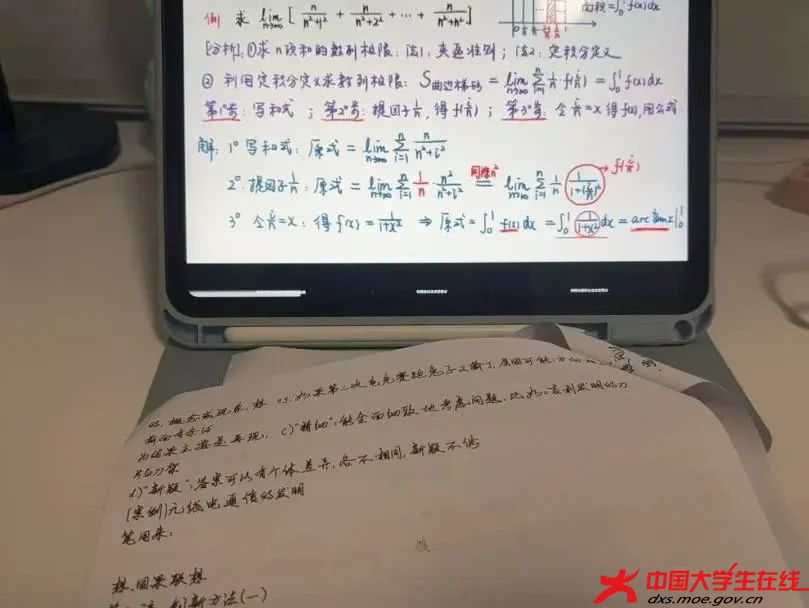 例 求 lim n→∞ [ n/(n²+1²) + n/(n²+2²) + ⋯ + n/(n²+n²) ]
面积=∫₀¹f(x)dx
[分析]:①求n项和的数列极限:法1:夹逼准则;法2:定积分定义
② 利用定积分定义求数列极限:S曲边梯形 = lim n→∞ Σ i=1 n 1/n f(i/n) = ∫₀¹ f(x)dx
第1步:写和式;第2步:提因子1/n,得f(i/n);第3步:令i/n=x得f(x),用公式
解:1° 写和式:原式 = lim n→∞ Σ i=1 n n/(n²+i²)
2° 提因子1/n:原式 = lim n→∞ Σ i=1 n 1/n · n²/(n²+i²) 同除n² = lim n→∞ Σ i=1 n 1/n 1/(1+(i/n)²) → f(i/n)
3° 令i/n=x:得f(x)=1/(1+x²) ⇒ 原式=∫₀¹ f(x)dx =∫₀¹ 1/(1+x²) dx = arctanx|₀¹
如果第二次龟兔赛跑兔子又输了,原因可能
c)"精细":能全面细致地考虑问题,
d)"新颖":答案可以有个体差异,各不相同,新颖不俗
[案例]无线电通信的发明
想.因果联想
创新方法(一)
中国大学生在线
dxs.moe.gov.cn